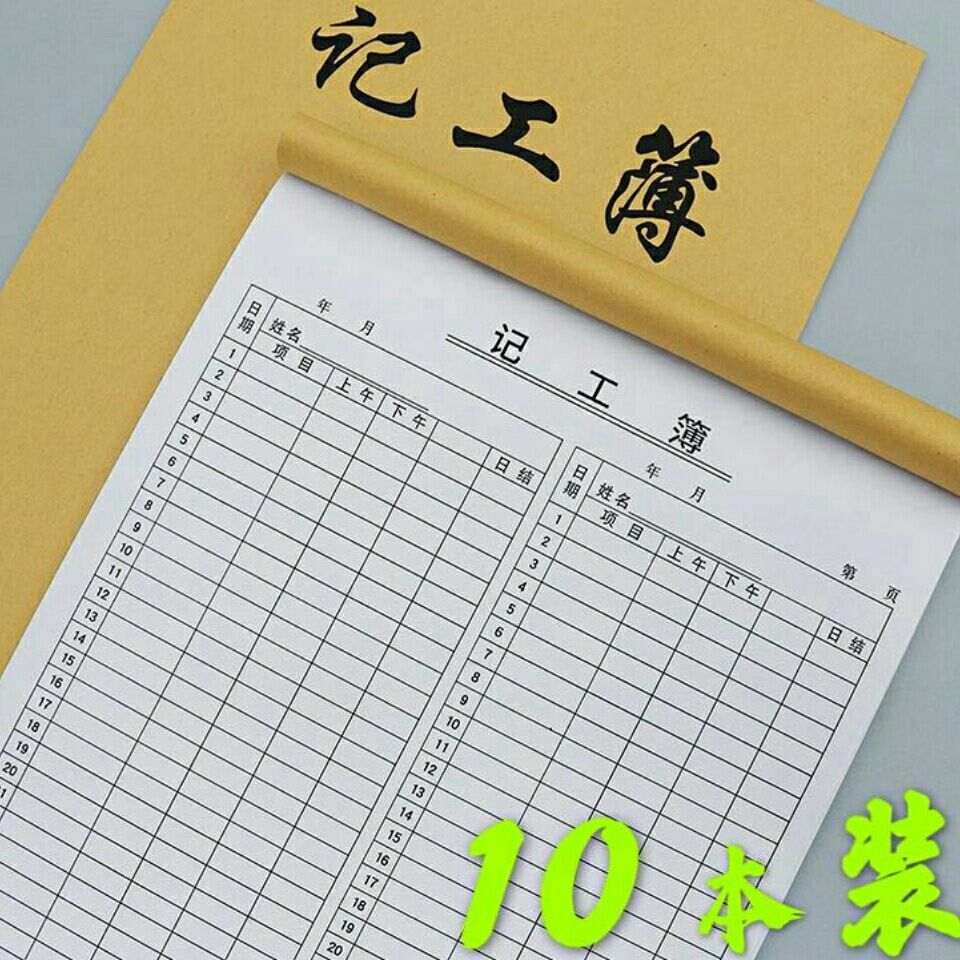 记工簿
记工簿
年 月
日期 姓名
项目 上午 下午 日结
1
2
3
4
5
6
7
8
9
10
11
12
13
14
15
16
17
18
19
20
年 月
第 页
日期 姓名
项目 上午 下午 日结
1
2
3
4
5
6
7
8
9
10
11
12
13
14
15
16
17
18
19
20
10本装